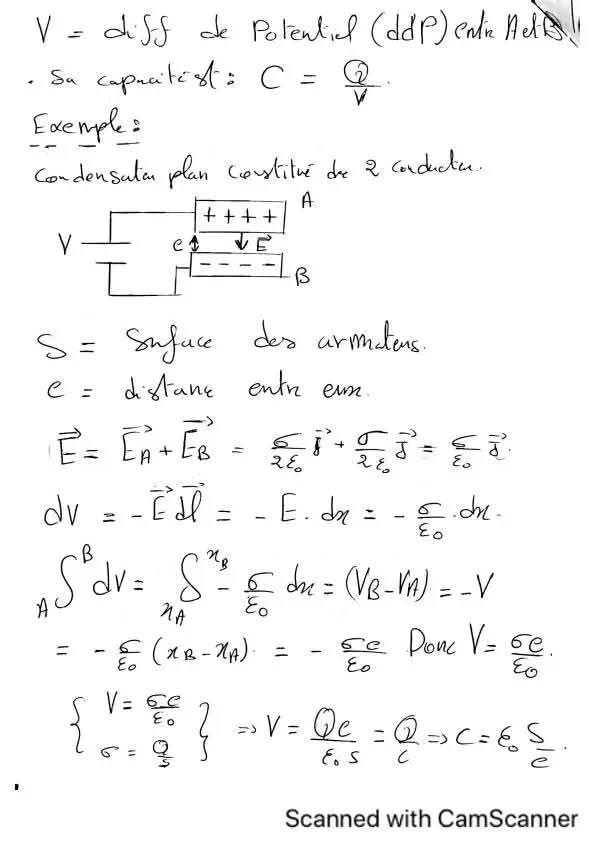 V = diff de Potentiel (ddP) entre A et B
. Sa capacité est : C = Q/V.
Exemple :
Condensateur plan constitué de 2 conducteurs.
A
+ + + +
V
e
E⃗
– – – –
B
S = Surface des armatures.
e = distance entre eux.
E⃗ = E⃗_A + E⃗_B = σ/2ε₀ j⃗ + σ/2ε₀ j⃗ = σ/ε₀ j⃗.
dv = - E⃗ dl⃗ = - E . dx = - σ/ε₀ . dx.
_A∫^B dv = _{x_A}∫^{x_B} - σ/ε₀ dx = (V_B - V_A) = -V
= - σ/ε₀ (x_B - x_A) . = - σe/ε₀ Donc V = σe/ε₀.
{ V = σe/ε₀
σ = Q/S } => V = Qe/ε₀S = Q/C => C = ε₀ S/e.
Scanned with CamScanner